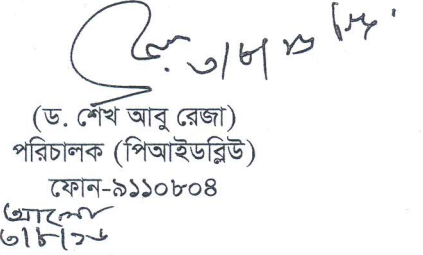 ৩/৮/১৬ খ্রি.
(ড. শেখ আবু রেজা)
পরিচালক (পিআইডব্লিউ)
ফোন-৯১১০৮০৪
৩/৮/১৬